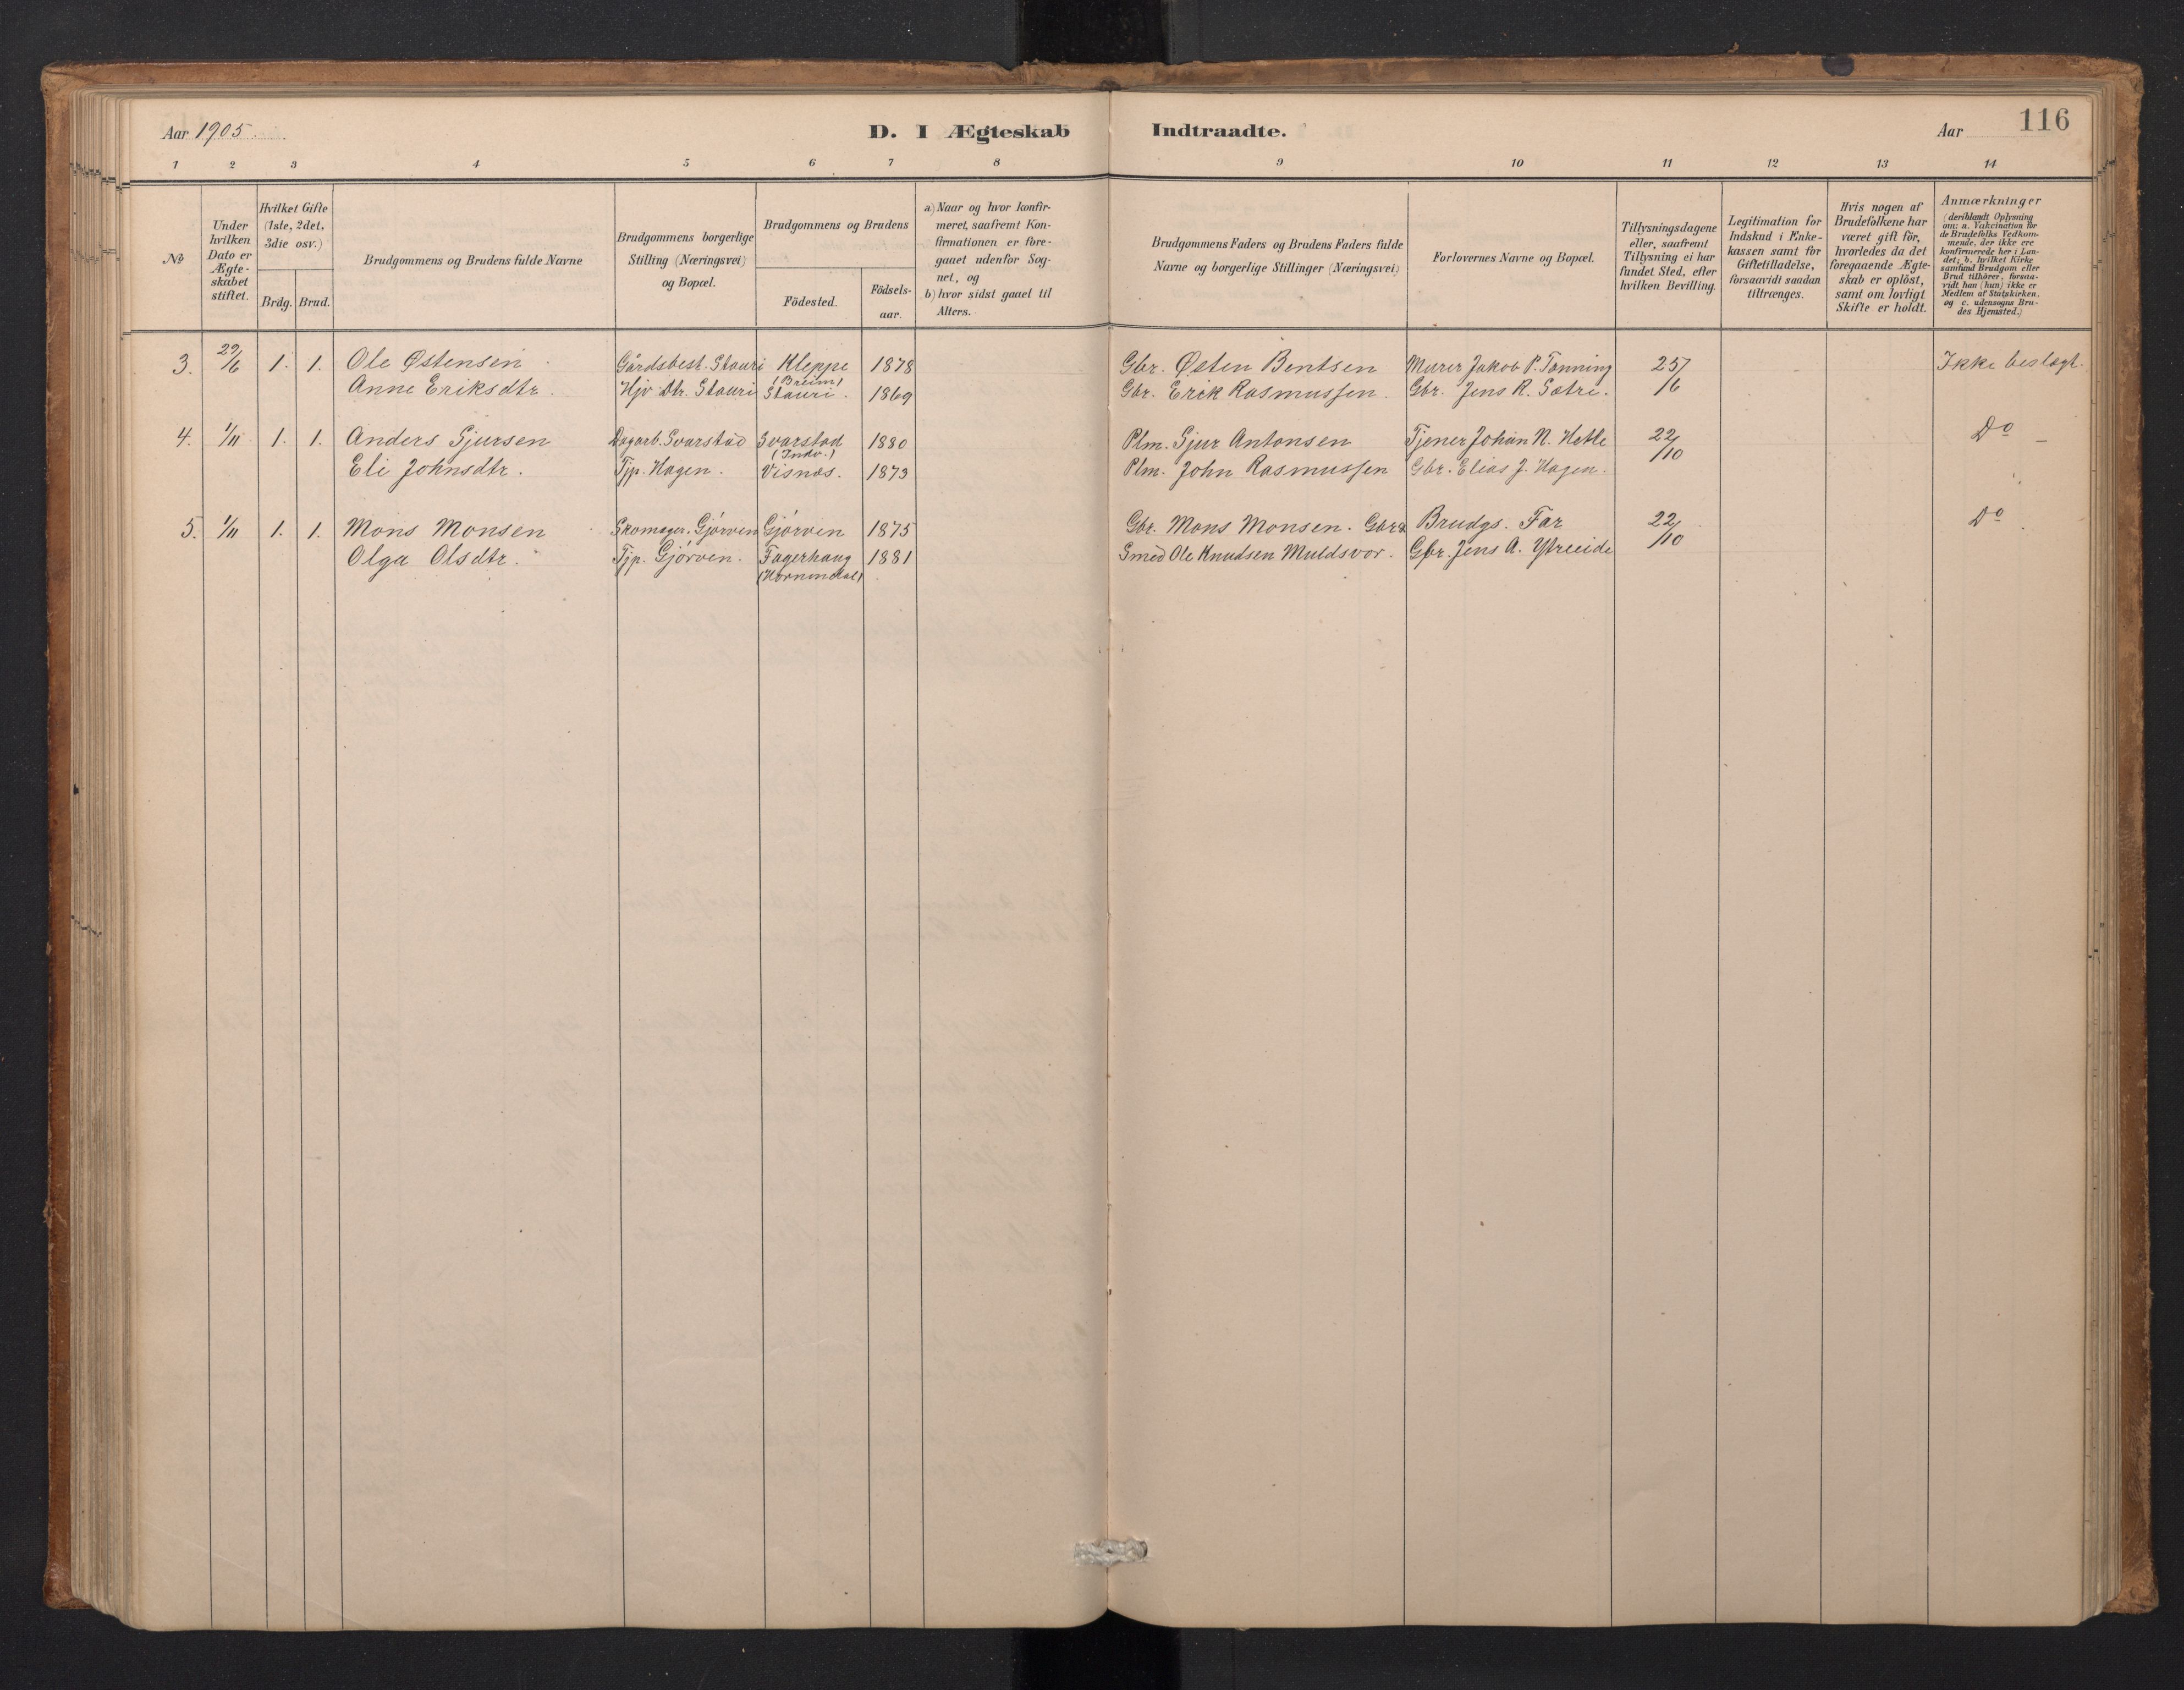 Aar 1905.
D. I Ægteskab Indtraadte.
Aar
116
1 2 3 4 5 6 7 8 9 10 11 12 13 14
No
Under
hvilken
Dato er
Ægte-
skabet
stiftet.
Hvilket Gifte
(1ste, 2det,
3die osv.)
Brdg. Brud.
Brudgommens og Brudens fulde Navne
Brudgommens borgerlige
Stilling (Næringsvei)
og Bopæl.
Brudgommens og Brudens
Födested.
Födsels-
aar.
a) Naar og hvor konfir-
meret, saafremt Kon-
firmationen er fore-
gaaet udenfor Sog-
net, og
b) hvor sidst gaaet til
Alters.
Brudgommens Faders og Brudens Faders fulde
Navne og borgerlige Stillinger (Næringsvei)
Forlovernes Navne og Bopæl.
Tillysningsdagene
eller, saafremt
Tillysning ei har
fundet Sted, efter
hvilken Bevilling.
Legitimation for
Indskud i Enke-
kassen samt for
Giftetilladelse,
forsaavidt saadan
tiltrænges.
Hvis nogen af
Brudefolkene har
været gift för,
hvorledes da det
foregaaende Ægte-
skab er oplöst,
samt om lovligt
Skifte er holdt.
Anmærkninger
(deriblandt Oplysning
om: a. Vakcination for
de Brudefolks Vedkom-
mende, der ikke ere
konfirmerede her i Lan-
det; b. hvilket Kirke
samfund Brudgom eller
Brud tilhörer, forsaa-
vidt han (hun) ikke er
Medlem af Statskirken,
og c. udensogns Bru-
des Hjemsted.)
3. 29/6 1. 1. Ole Østensen Gårdsbest. Stauri Kleppe (Breim) 1878 Gbr. Østen Bentsen Murer Jakob P. Tonning 25/6 Ikke beslægt.
Anne Eriksdtr. Hjv Dtr. Stauri Stauri. 1869 Gbr. Erik Rasmussen. Gbr. Jens R. Sætre.
4. 1/11 1. 1. Anders Sjursen Dagarb. Svarstad Svarstad (Indv.) 1880 Plm. Sjur Antonsen Tjener Johan N. Hetle 22/10 Do –
Eli Johnsdtr. Tjp. Hagen. Visnæs. 1873 Plm. John Rasmussen Gbr. Elias J. Hagen.
5. 1/11 1. 1. Mons Monsen Skomager. Gjörven Gjörven 1875 Gbr. Mons Monsen. Brudgs. Far 22/10 Do.
Olga Olsdtr. Tjp. Gjörven. Fagerhaug (Hornindal) 1881 Smed Ole Knudsen Muldsvor. Gbr. Jens A. Ytreeide